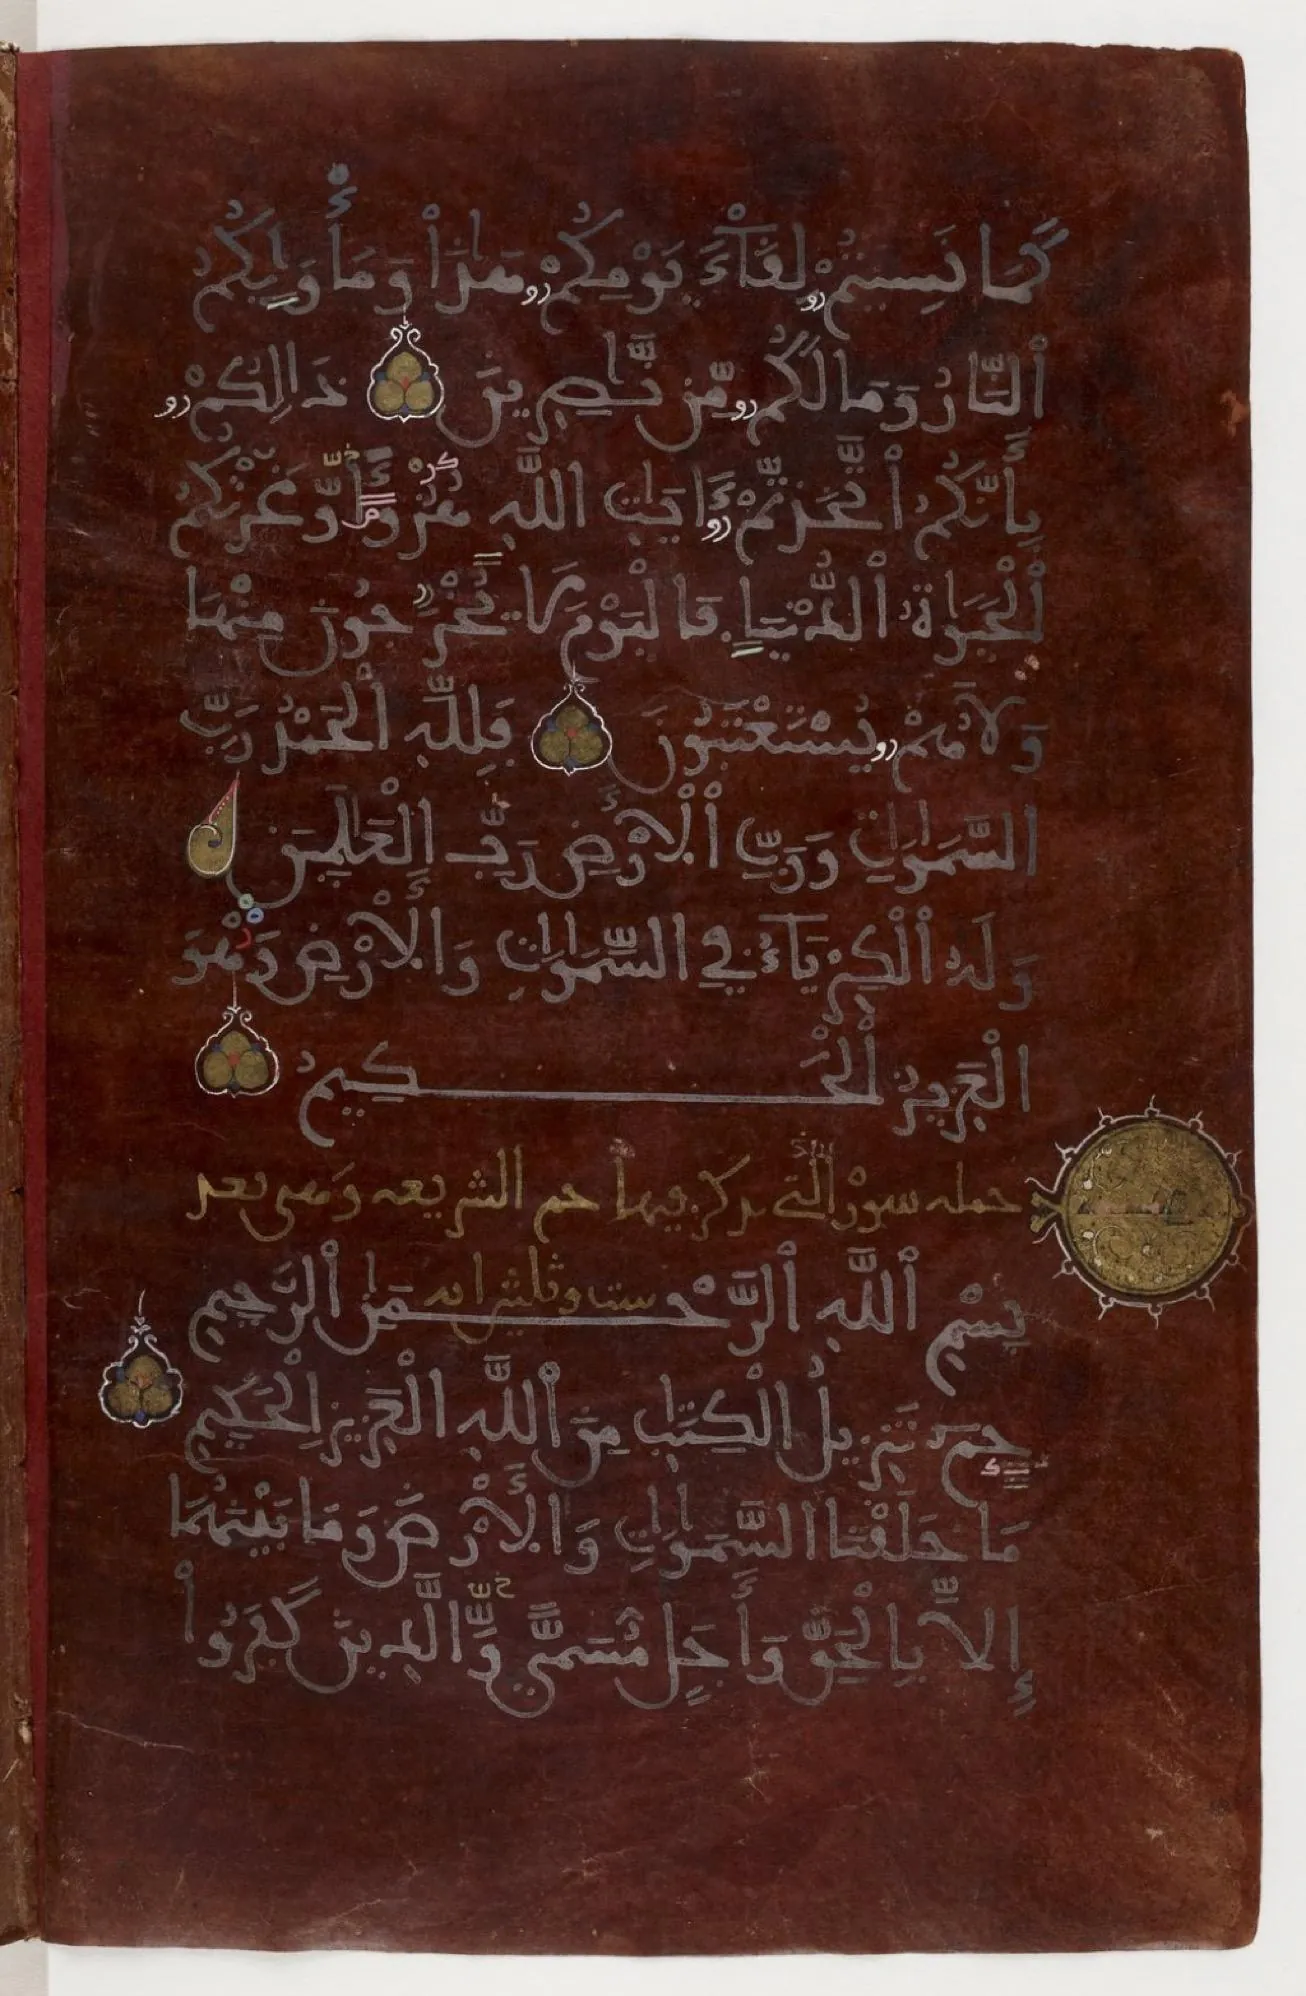 كَمَا نَسِيتُمْ لِقَآءَ يَوْمِكُمْ هَٰذَا وَمَأْوَىٰكُمُ
النَّارُ وَمَا لَكُم مِّن نَّٰصِرِينَ ذَٰلِكُمْ
بِأَنَّكُمُ اتَّخَذتُّمْ ءَايَٰتِ اللَّهِ هُزُؤًا وَغَرَّتْكُمُ
الْحَيَوٰةُ الدُّنْيَا فَالْيَوْمَ لَا يُخْرَجُونَ مِنْهَا
وَلَا هُمْ يُسْتَعْتَبُونَ فَلِلَّهِ الْحَمْدُ رَبِّ
السَّمَٰوَٰتِ وَرَبِّ الْأَرْضِ رَبِّ الْعَٰلَمِينَ
وَلَهُ الْكِبْرِيَآءُ فِي السَّمَٰوَٰتِ وَالْأَرْضِ وَهُوَ
الْعَزِيزُ الْحَكِيمُ
سور التي يذكر فيها حم الشريعه وهي
بِسْمِ اللَّهِ الرَّحْمَٰنِ الرَّحِيمِ
ست وثلثين ايه
حمٓ تَنزِيلُ الْكِتَٰبِ مِنَ اللَّهِ الْعَزِيزِ الْحَكِيمِ
مَا خَلَقْنَا السَّمَٰوَٰتِ وَالْأَرْضَ وَمَا بَيْنَهُمَا
إِلَّا بِالْحَقِّ وَأَجَلٍ مُّسَمًّى وَالَّذِينَ كَفَرُوا